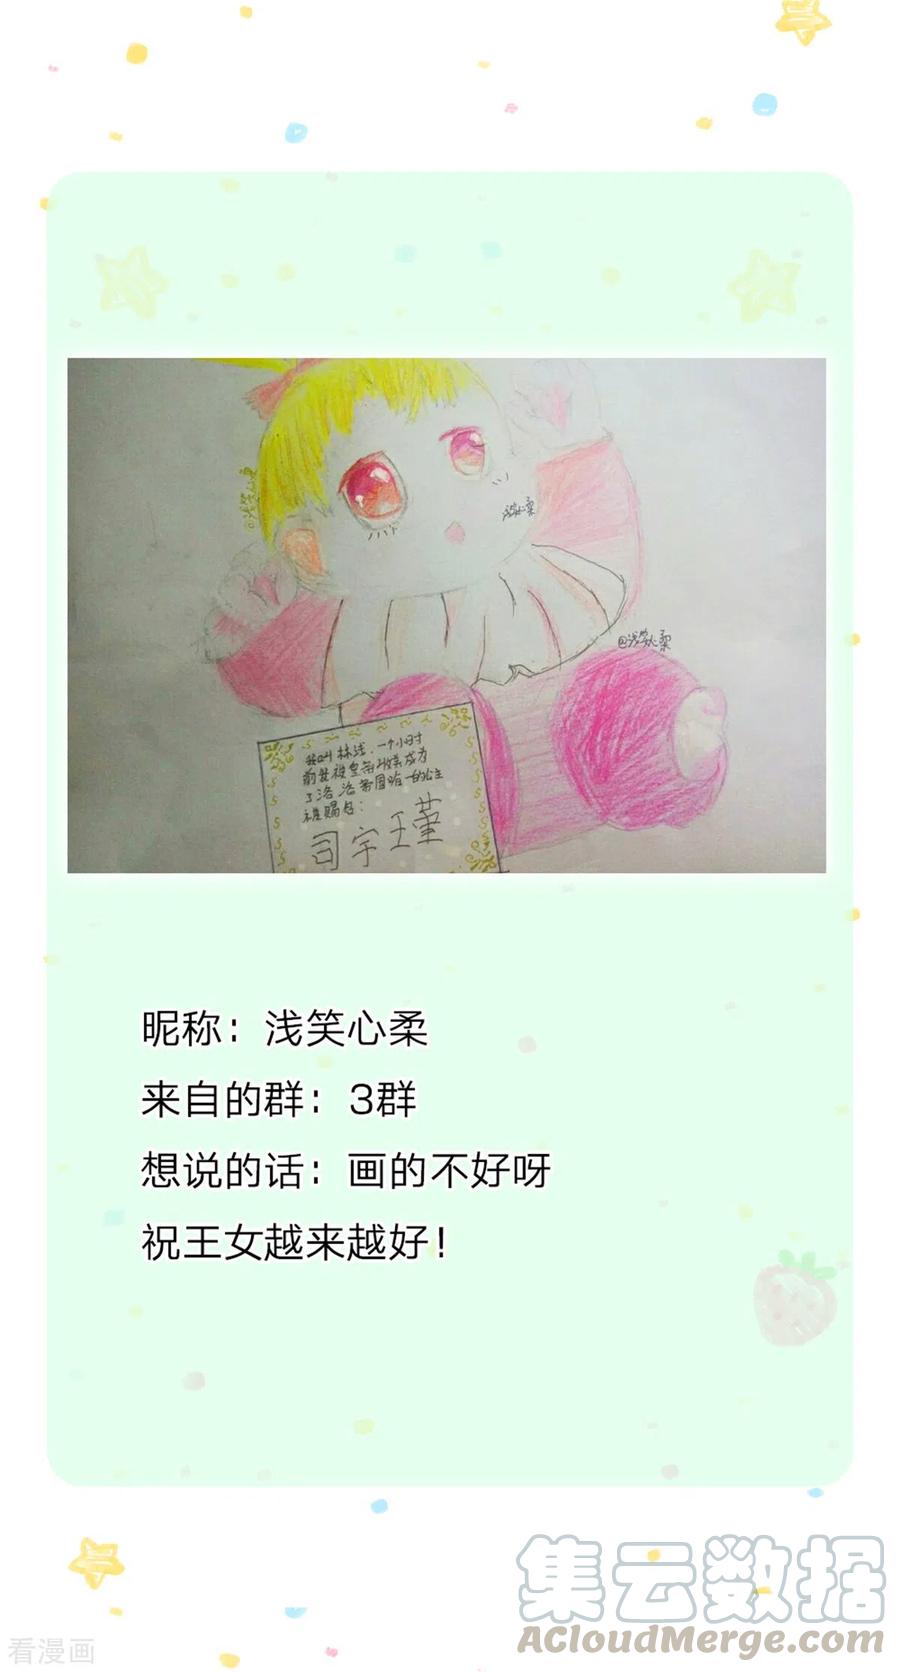 @浅笑心柔
浅笑心柔
@浅笑心柔
我叫林浅,一个小时
前我被皇帝收养成为
了洛洛帝国唯一的公主
被赐名:
司宇王堇
昵称：浅笑心柔
来自的群：3群
想说的话：画的不好呀
祝王女越来越好！
集云数据
ACloudMerge.com
看漫画